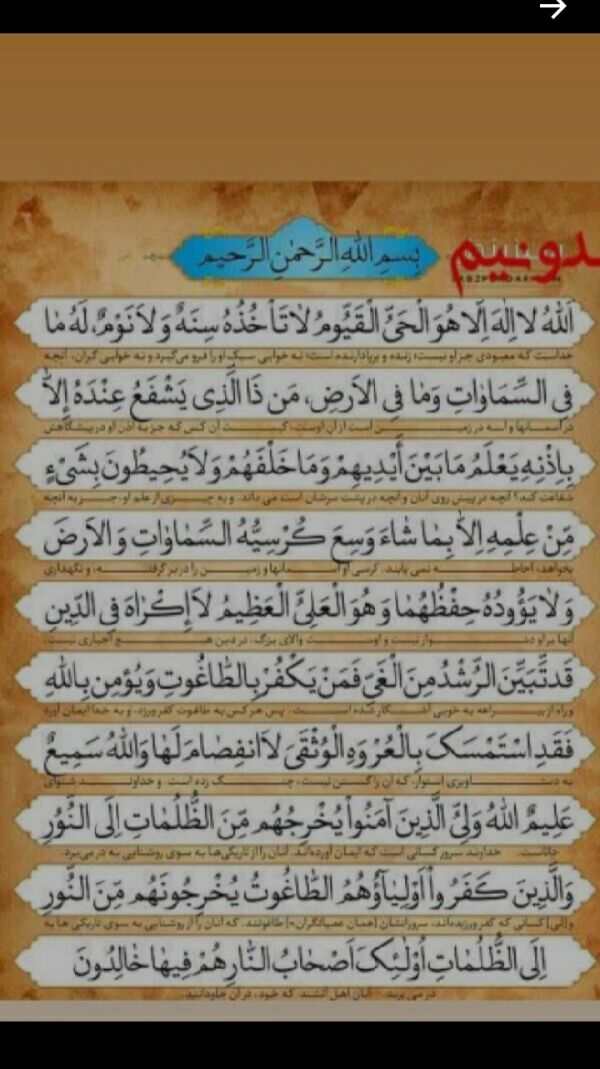 بِسْمِ اللهِ الرَّحْمٰنِ الرَّحیم
دونیم
اَللهُ لا اِلٰهَ اِلّا هُوَ الْحَیُّ الْقَیُّومُ لاٰ تَاْخُذُهُ سِنَةٌ وَ لاٰ نَوْمٌ، لَهُ مٰا
خداست که معبودی جز او نیست؛ زنده و برپادارنده است؛ نه خوابی سبک او را فرو می‌گیرد و نه خوابی گران. آنچه
فِی السِّمَاوٰاتِ وَمٰا فِی الاَرضِ، مَن ذَا الَّذِی یَشْفَعُ عِنْدَهُ اِلاّٰ
در آسمانها و آنچه در زمین است از آن اوست، کیست آن کس که جز به اذن او در پیشگاهش
بِاِذْنِهِ یَعْلَمُ مٰا بَیْنَ أَیْدِیهِمْ وَ مٰا خَلْفَهُمْ وَلاٰ یُحِیطُونَ بِشَیْءٍ
شفاعت کند؟ آنچه در پیش روی آنان و آنچه در پشت سرشان است می داند. و به چیزی از علم او، جز به آنچه
مِّنْ عِلْمِهِ اِلاّٰ بِمٰا شٰاءَ وَسِعَ کُرْسِیُّهُ السِّمٰاوٰاتِ وَ الاَرضَ
بخواهد، احاطه نمی یابند. کرسی او آسمانها و زمین را در بر گرفته، و نگهداری
وَ لاٰ یَؤُودُهُ حِفْظُهُمٰا وَ هُوَ الْعَلِیُّ الْعَظِیمُ لاٰ إِکْرٰاهَ فِی الدِّینِ
آنها بر او دشوار نیست و اوست والای بزرگ. در دین هیچ اجباری نیست
قَد تَّبَیَّنَ الرُّشْدُ مِنَ الْغَیِّ فَمَنْ یَکْفُرْ بِالطّٰاغُوتِ وَ یُؤمِن بِاللهِ
و راه از بیراهه به خوبی آشکار شده است. پس هر کس به طاغوت کفر ورزد، و به خدا ایمان آورد
فَقَدِ اسْتَمْسَکَ بِالْعُرْوَهِ الْوُثْقَیَ لاَ انفِصٰامَ لَهٰا وَاللهُ سَمِیعٌ
به دستاویزی استوار، که آن را گسستن نیست، چنگ زده است. و خداوند شنوای
عَلِیمٌ اللهُ وَلِیُّ الَّذِینَ آمَنُواْ یُخْرِجُهُم مِّنَ الظُّلُمٰاتِ اِلَی النُّوُرِ
داناست. خداوند سرور کسانی است که ایمان آورده‌اند. آنان را از تاریکی‌ها به سوی روشنایی به در می‌برد.
وَالَّذِینَ کَفَرُواْ اَوْلِیٰاؤُهُمُ الطّٰاغُوتُ یُخْرِجُونَهُم مِّنَ النُّورِ
و [لی] کسانی که کفر ورزیده‌اند، سرورانشان [همان عصیانگران=] طاغوتند، که آنان را از روشنایی به سوی تاریکی ها به
اِلَی الظُّلُمٰاتِ اُوْلٰئِکَ اَصْحٰابُ النّٰارِ هُمْ فِیهٰا خٰالِدُونَ
در می برند. آنان اهل آتشند که خود، در آن جاودانند.